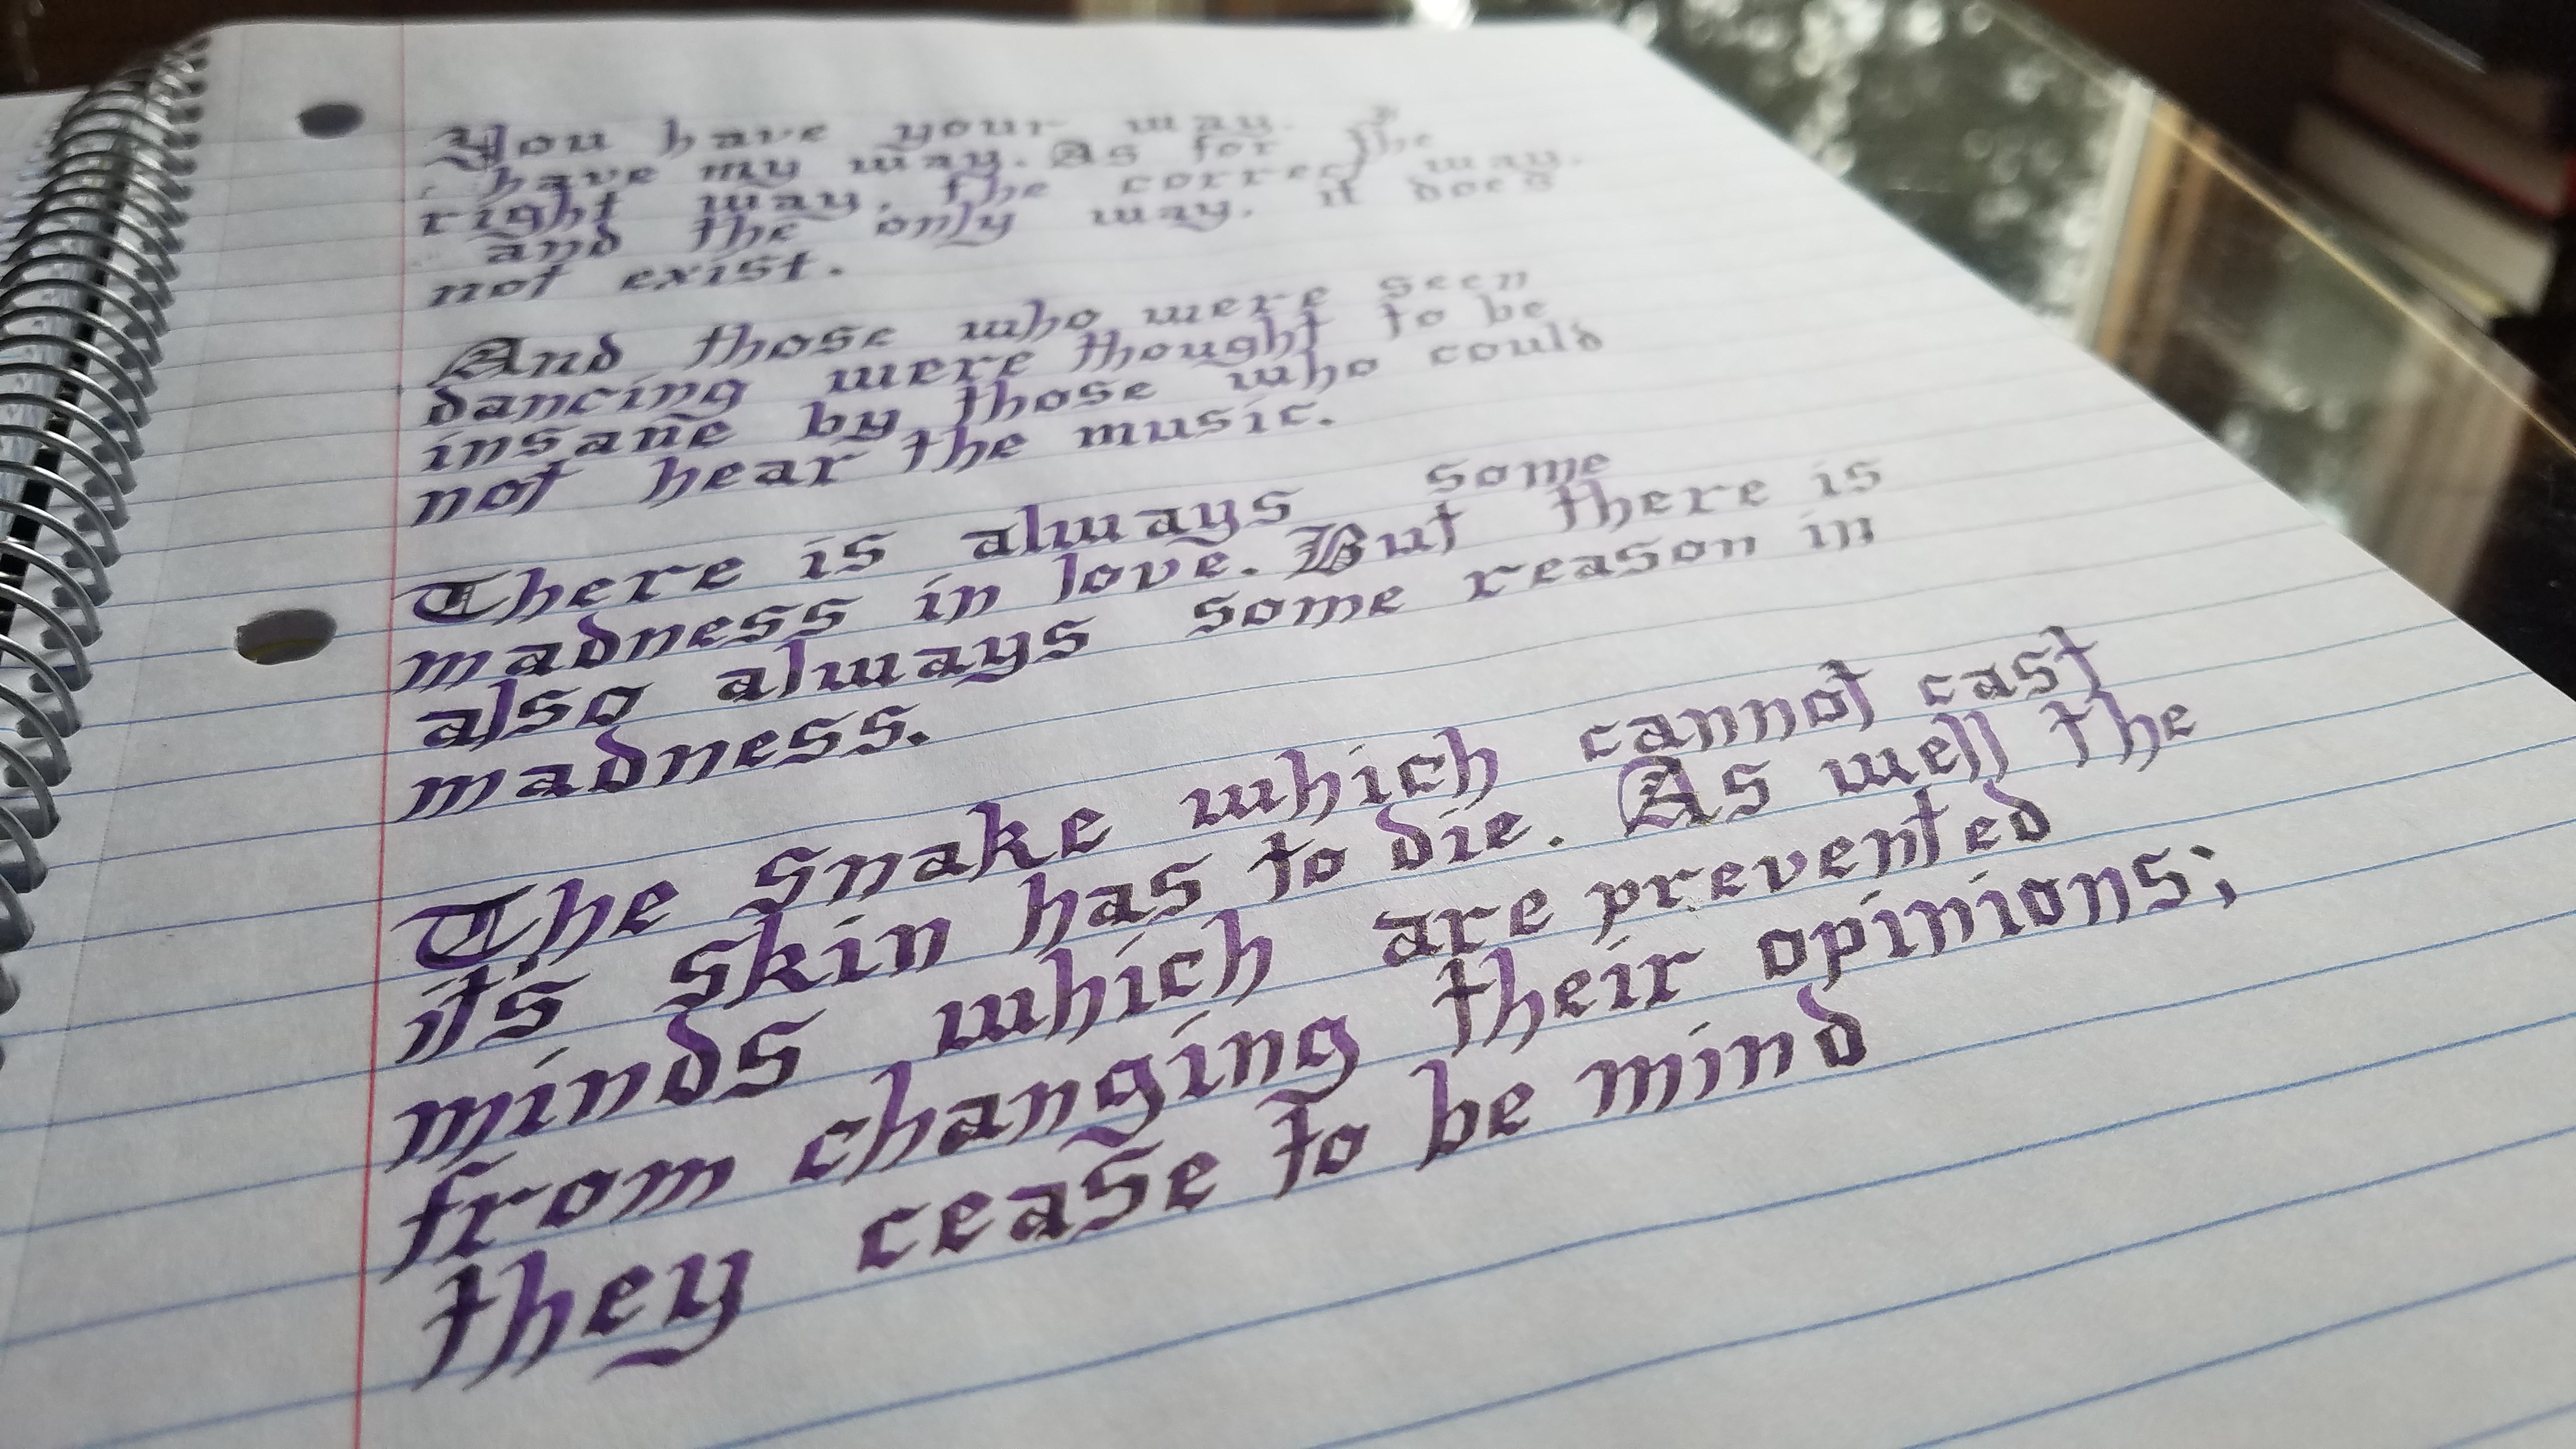 You have your way. I
have my way. As for the
right way, the correct way,
and the only way, it does
not exist.
And those who were seen
dancing were thought to be
insane by those who could
not hear the music.
There is always some
madness in love. But there is
also always some reason in
madness.
The snake which cannot cast
it's skin has to die. As well the
minds which are prevented
from changing their opinions;
they cease to be mind